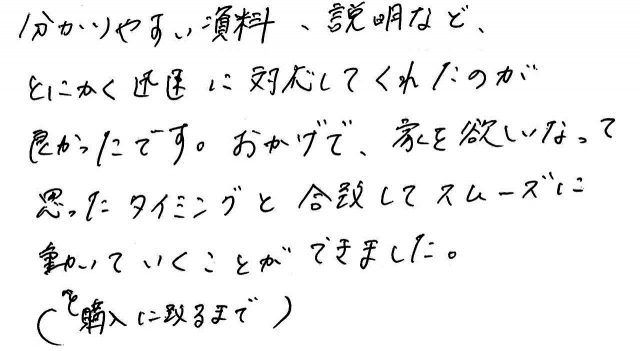 分かりやすい資料、説明など、
とにかく迅速に対応してくれたのが
良かったです。おかげで、家を欲しいなって
思ったタイミングと合致してスムーズに
動いていくことができました。
(を購入に致るまで)